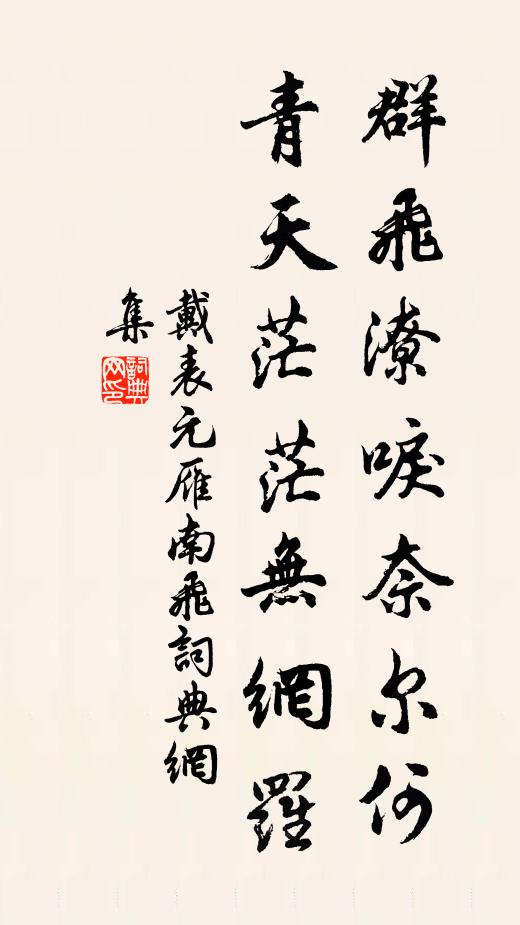 群飛潦唳奈尔何
青天茫茫無網羅
戴表元雁南飛詞典網
集
詞典
网印